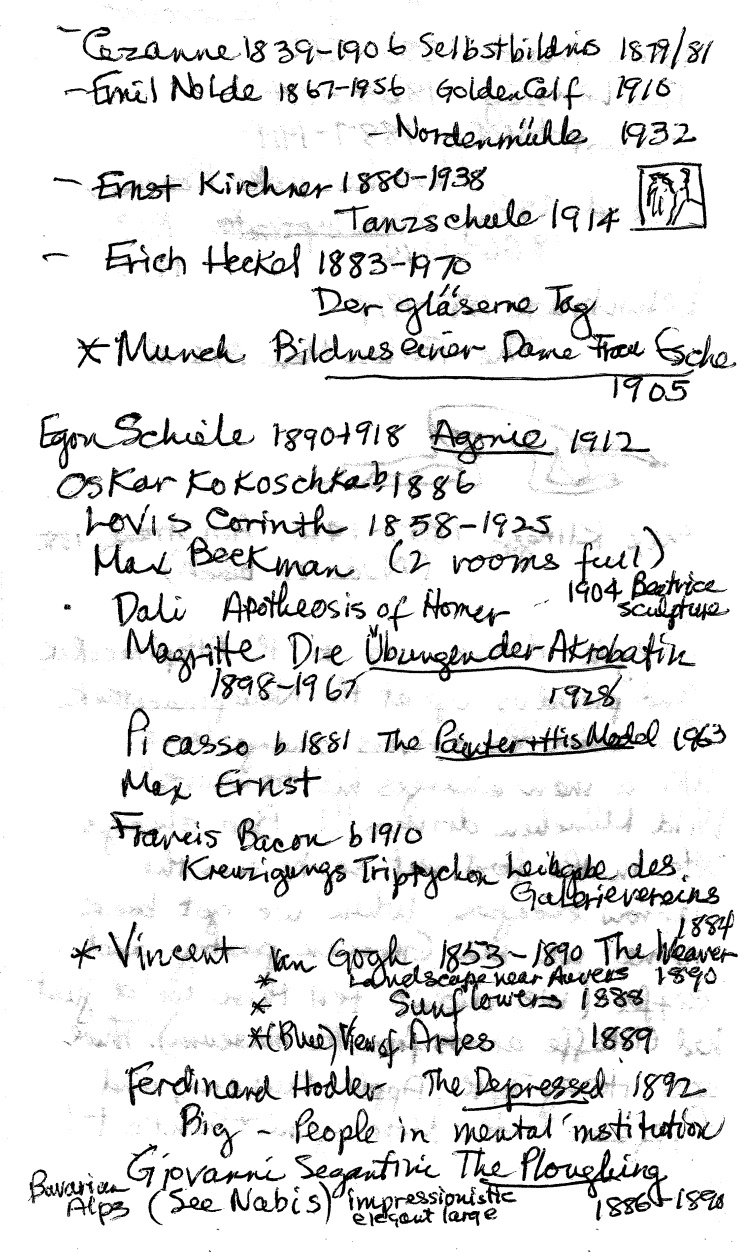 - Cezanne 1839-1906 Selbstbildnis 1879/81
- Emil Nolde 1867-1956 Golden Calf 1910
- Nordermühle 1932
- Ernst Kirchner 1880-1938
Tanzschule 1914
- Erich Heckel 1883-1970
Der gläserne Tag
* Munch Bildnes einer Dame Frau Esche
1905
Egon Schiele 1890-1918 Agonie 1912
Oskar Kokoschka b 1886
Lovis Corinth 1858-1925
Max Beckman (2 rooms full)
Dali Apotheosis of Homer - 1904 Beatrice
sculpture
Magritte Die Übungen der Akrobatin
1898-1967 1928
Picasso b 1881 The Painter + His Model 1963
Max Ernst
Francis Bacon b 1910
Kreuzigungs Triptychon Leihgabe des
Galerievereins
* Vincent Van Gogh 1853-1890 The Weaver 1884
* Landscape near Auvers 1890
* Sunflowers 1888
* (Blue) View of Arles 1889
Ferdinand Hodler The Depressed 1892
Big - People in mental institution
Giovanni Segantini The Ploughing
Bavarian Alps (See Nabis) impressionistic
elegant large 1886-1890